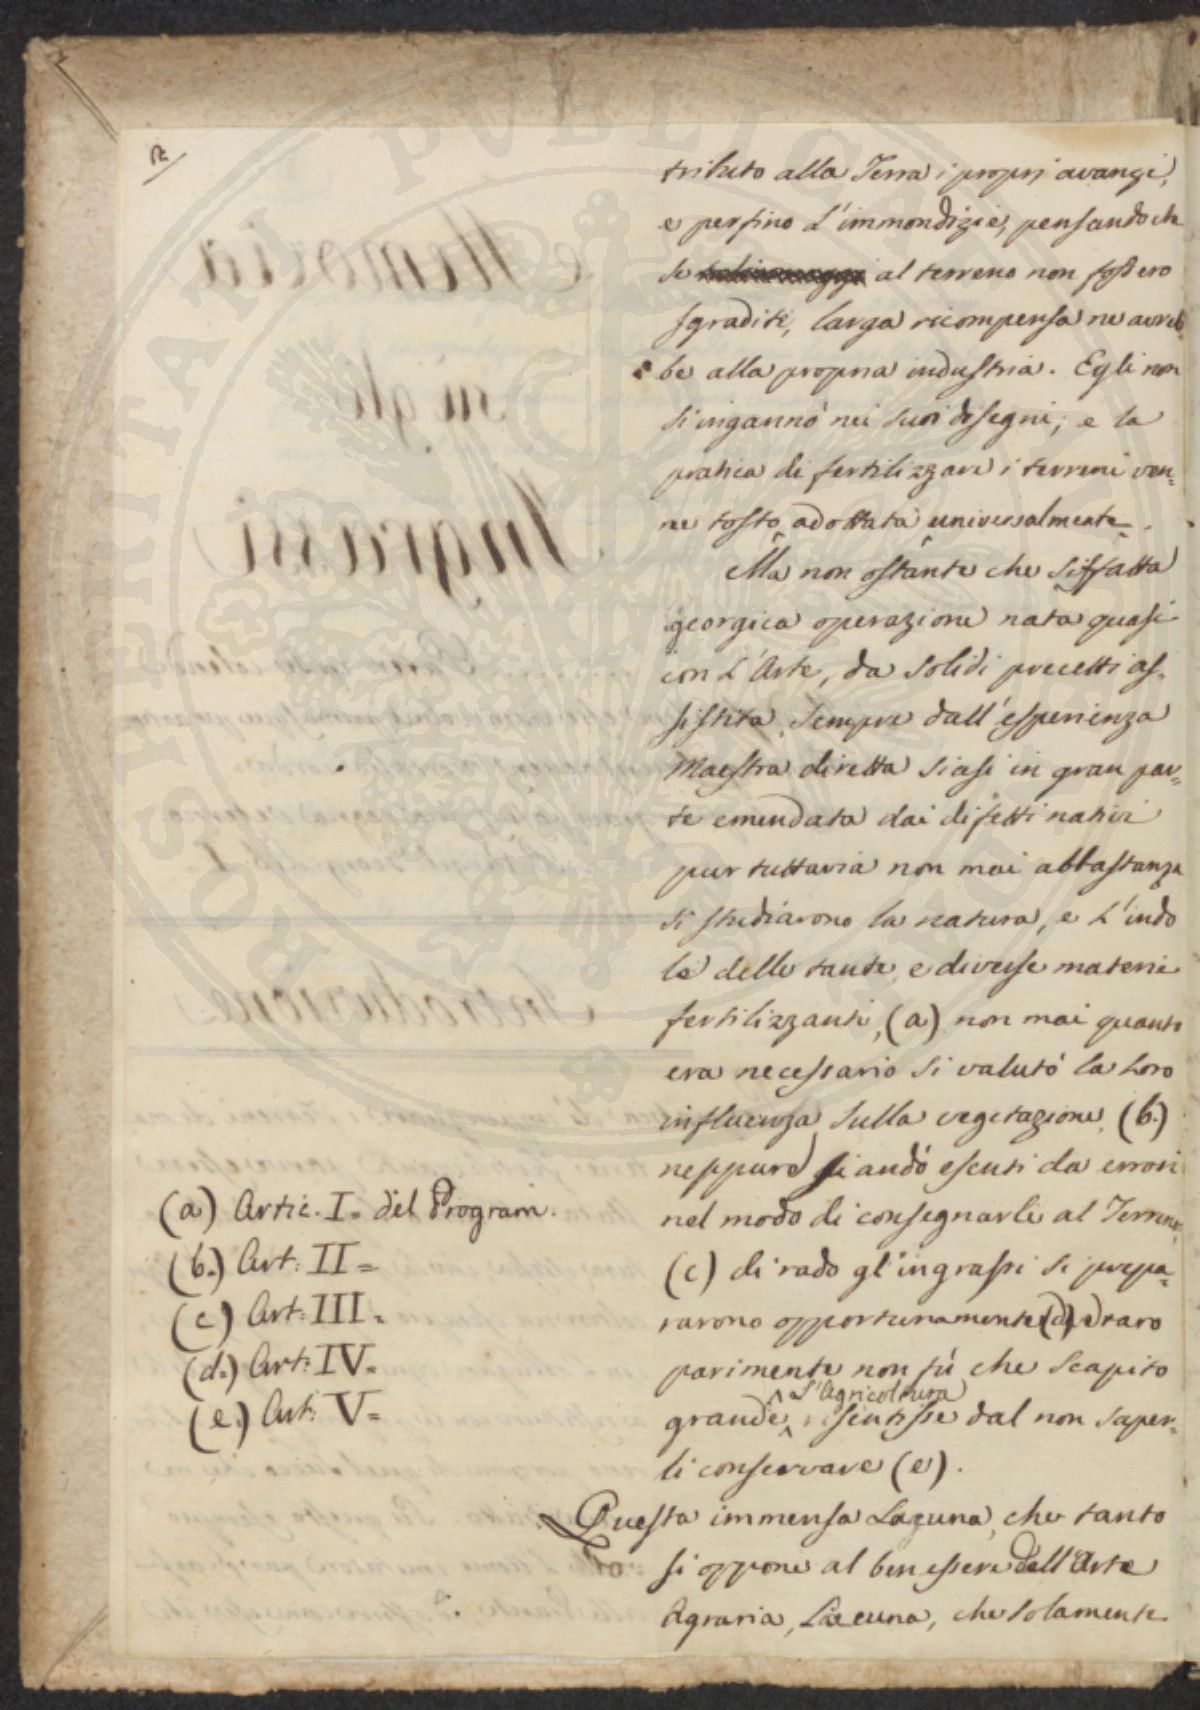 tributo alla Terra i proprj avanzi,
e perfino l'immondizie, pensando che
se al terreno non fossero
sgraditi, larga ricompensa ne avreb
be alla propria industria. Egli non
s'ingannò nei suoi disegni; e la
pratica di fertilizzare i terreni ven=
ne tosto adottata universalmente.
Ma non ostante che siffatta
georgica operazione nata quasi
con l'Arte, da solidi precetti as-
sistita, sempre dall'esperienza
Maestra diretta siasi in gran par=
te emendata dai difetti nativi
pur tuttavia non mai abbastanza
si studiarono la natura, e l'indo
le delle tante, e diverse materie
fertilizzanti, (a) non mai quanto
era necessario si valutò la loro
influenza sulla vegetazione, (b.)
neppure si andò esenti da errori
nel modo di consegnarli al Terreno,
(c) di rado gl'ingrassi si prepa=
rarono opportunamente (d) e raro
parimente non fù che scapito
grande, l'Agricoltura risentisse dal non saper-
li conservare (e).
Questa immensa Laguna, che tanto
si oppone al ben essere dell'Arte
Agraria, Lacuna, che solamente
(a) Artic. I= del Program.
(b.) Art: II=
(c) Art: III=
(d.) Art: IV=
(e.) Art: V=